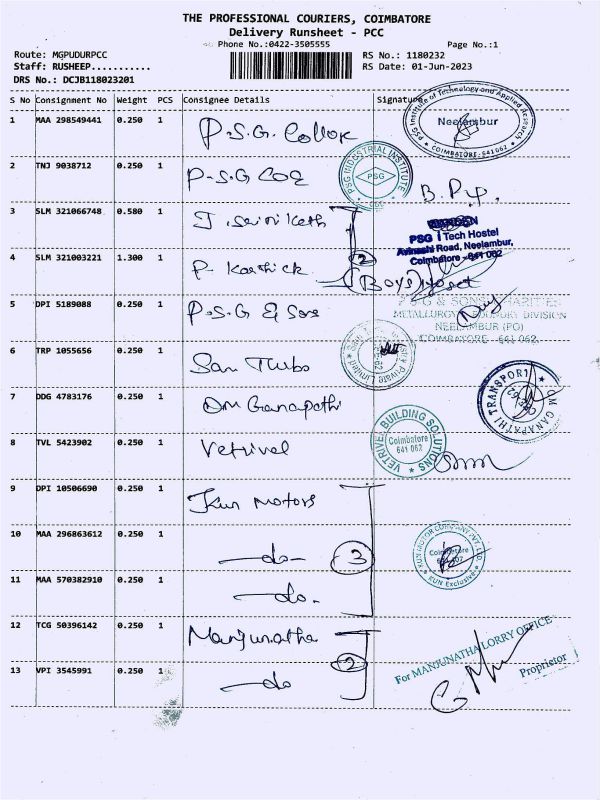 THE PROFESSIONAL COURIERS, COIMBATORE
Delivery Runsheet - PCC
Phone No.:0422-3505555 Page No.:1
Route: MGPUDURPCC RS No.: 1180232
Staff: RUSHEEP........... RS Date: 01-Jun-2023
DRS No.: DCJB118023201
S No Consignment No Weight PCS Consignee Details Signature
1 MAA 298549441 0.250 1 P.S.G. Collge
PSG Institute of Technology and Applied Research
Neelambur
COIMBATORE-641062
2 TNJ 9038712 0.250 1 P.S.G COE
PSG INDUSTRIAL INSTITUTE
PSG
3 SLM 321066748 0.580 1 J. Siriketh
WARDEN
PSG iTech Hostel
Avinashi Road, Neelambur,
Coimbatore - 641 062
4 SLM 321003221 1.300 1 P. Karthick 2 (Boys)
5 DPI 5189088 0.250 1 P.S.G & Sons
P S G & SONS CHARITIES
METALLURGY & FOUNDRY DIVISION
NEELAMBUR (PO)
COIMBATORE - 641 062.
6 TRP 1055656 0.250 1 San Turbo
Private Limited
7 DDG 4783176 0.250 1 OM Ganapathi
OM GANAPATHI TRANSPORT
8 TVL 5423902 0.250 1 Vetrivel
VETRIVEL BUILDING SOLUTIONS
Coimbatore
641 062
9 DPI 10506690 0.250 1 Kun Motors
10 MAA 296863612 0.250 1 —do— 3
KUN MOTOR COMPANY PVT. LTD.
Coimbatore
KUN Exclusive
11 MAA 570382910 0.250 1 —do.
12 TCG 50396142 0.250 1 Manjunatha
For MANJUNATHA LORRY OFFICE
Proprietor
13 VPI 3545991 0.250 1 —do 2